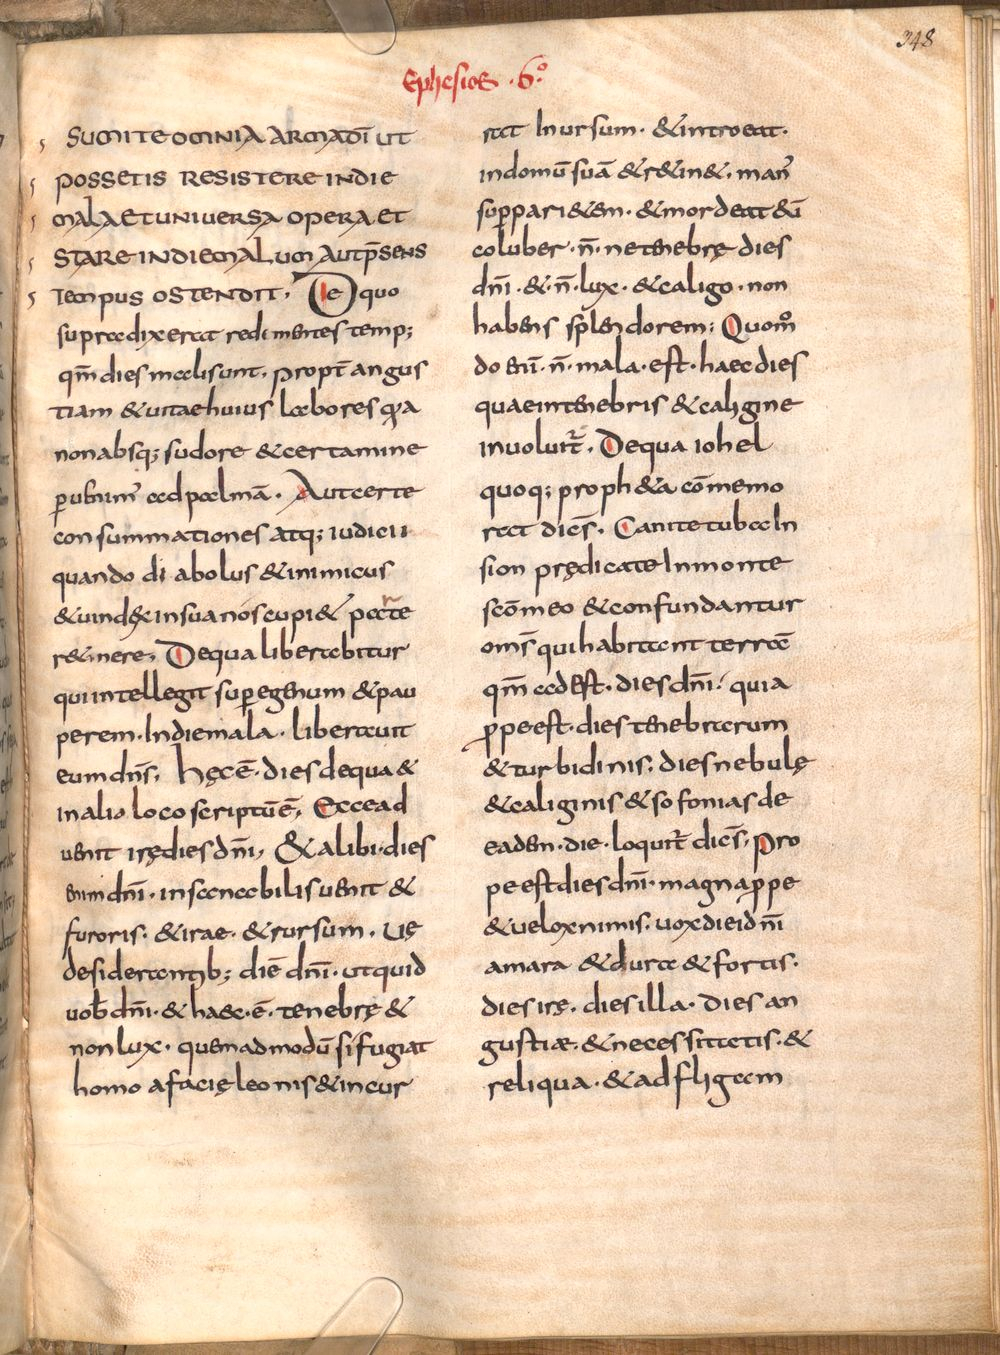 348
Ephesios .6.º
SUMITE OMNIA ARMA DĪ UT
POSSETIS RESISTERE IN DIE
MALA ET UNIVERSA OPERA ET
STARE IN DIE MALUM AUT P̄SENS
TEMPUS OSTENDIT. De quo
supra dixerat redimentes temp;
qm̄ dies mali sunt. propt̄ angus
tiam & uitae huius labores quia
non absq; sudore & certamine
peruenim̄ ad palmā. Aut certe
consummationes atq; iudicii
quando diabolus & inimicus
& uindex in sua nos cupi& parte
r&inere. De qua liberabitur
qui intellegit super egenum & pau
perem. In die mala. liberauit
eum dn̄s, hęc ē. dies de qua &
in alio loco scriptū ē, Ecce ad
uenit irę dies dn̄i, & alibi. dies
enim dn̄i. insanabilis uenit &
furoris. & irae. & rursum. Uę
desiderantib; diē dn̄i. ut quid
uob̄ dn̄i. & haec. ē. tenebrę &
non lux. quemadmodū si fugiat
homo a facię leonis & incur
rat In ursum. & introeat.
in domū suā & r&in&. man̄
sup̄ pari&em. & mordeat eū
coluber. n̄. ne tenebrę dies
dn̄i. &. n̄. lux. & caligo. non
habens splendorem; Quom̊
do enī. n̄. mala. est. haec dies
quae in tenebris & caligine
inuoluit̄. De qua iohel
quoq; proph&a cōmemo
rat dicēs. Canite tuba In
sion prędicate In monte
scō meo & confundantur
omn̄s qui habitant terrā
qm̄ adest. dies dn̄i. quia
prope est. dies tenebrarum
& turbidinis. dies nebulę
& caliginis & sofonias de
eadem. die. loquit̄ dicēs, Pro
pe est dies dn̄i. magna prope
& uelox nimis. uox diei dn̄i
amara & dura & fortis.
dies irę. dies illa. dies an
gustiæ. & necessitatis. &
reliqua. & ad fligam